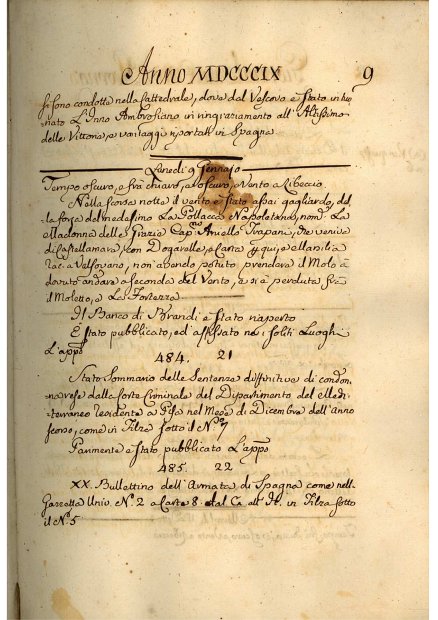 Anno MDCCCIX 9
si sono condotte nella Cattedrale, dove dal Vescovo è stato intuo
nato L'Inno Ambrosiano in ringraziamento all'Altissimo
delle Vittorie, e vantaggi riportati in Spagna
Lunedì 9 Gennajo
Tempo oscuro, e frà chiaro, e oscuro, e Vento a Libeccio
Nella scorsa notte il vento è stato assai gagliardo, del
la forza del medesimo La Pollacca Napoletana, nom: La
Madonna delle Grazie Cap:no Aniello Trapani, che veniva
di Castellamare, con Dogarelle, e Carta p qui, e alla
a Valsovano, non avendo potuto prendere il Molo à
dovuto andare a seconda del Vento, e si è perduta frà
il Moletto, e La Fortezza
Il Banco di Brandi è stato riaperto
È stato pubblicato, ed'affissato ne i soliti Luoghi
L'app:o
484. 21
Stato Sommario delle Sentenze diffinitive di condan
na rese dalla Corte Criminale del Dipartimento del Medi-
terraneo residente a Pisa nel Mese di Dicembre dell'anno
scorso, come in Filza sotto il N.o 7
Parimente è stato pubblicato L'app:o
485. 22
XX. Bullettino dell'Armata di Spagna come nella
Gazzetta Univ. N.o 2 a Carte 8. dal in Filza sotto
il N.o 5